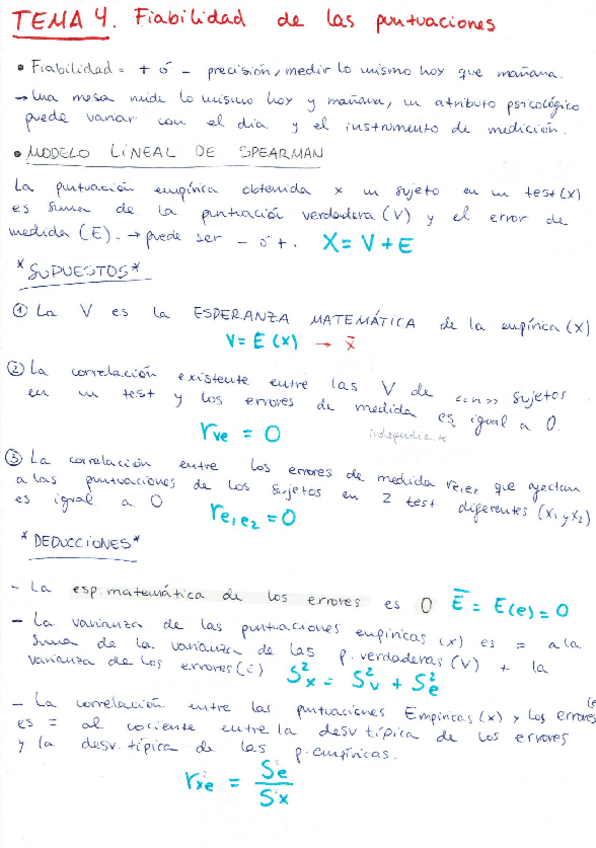 TEMA 4. Fiabilidad de las puntuaciones
• Fiabilidad = + ó - precisión, medir lo mismo hoy que mañana.
→ Una mesa mide lo mismo hoy y mañana, un atributo psicológico
puede variar con el día y el instrumento de medición.
• MODELO LINEAL DE SPEARMAN
La puntuación empírica obtenida x un sujeto en un test (X)
es suma de la puntuación verdadera (V) y el error de
medida (E). → puede ser - ó +. X = V + E
*SUPUESTOS*
① La V es la ESPERANZA MATEMÁTICA de la empírica (X)
V = E (X) → x̄
② La correlación existente entre las V de <<n>> sujetos
en un test y los errores de medida es igual a 0.
rve = 0
③ La correlación entre los errores de medida re1e2 que afectan
a las puntuaciones de los sujetos en 2 test diferentes (X1 y X2)
es igual a 0
re1e2 = 0
*DEDUCCIONES*
- La esp. matemática de los errores es 0 Ē = E(e) = 0
- La varianza de las puntuaciones empíricas (x) es = a la
suma de la varianza de las p. verdaderas (V) + la
varianza de los errores (e) S²x = S²v + S²e
- La correlación entre las puntuaciones Empíricas (x) y los errores (e
es = al cociente entre la desv. típica de los errores
y la desv. típica de las p. empíricas.
rxe = Se
Sx